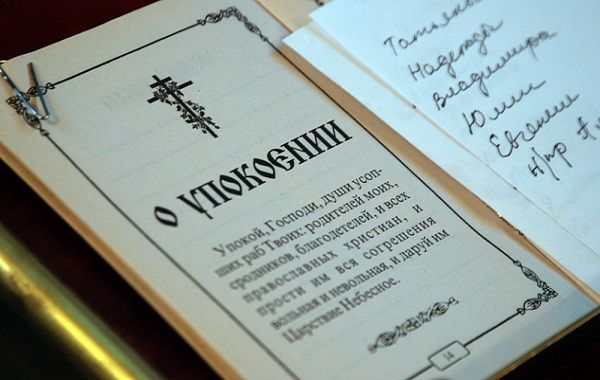 О УПОКОЄНИИ
Упокой, Господи, души усоп-
ших раб Твоих: родителей моих,
сродников, благодетелей, и всех
православных христиан, и
прости им вся согрешения
вольная и невольная, и даруй им
Царствие Небесное.
14
Татьяны
Надежды
Владимира
Юлии
Евгении
н/пр